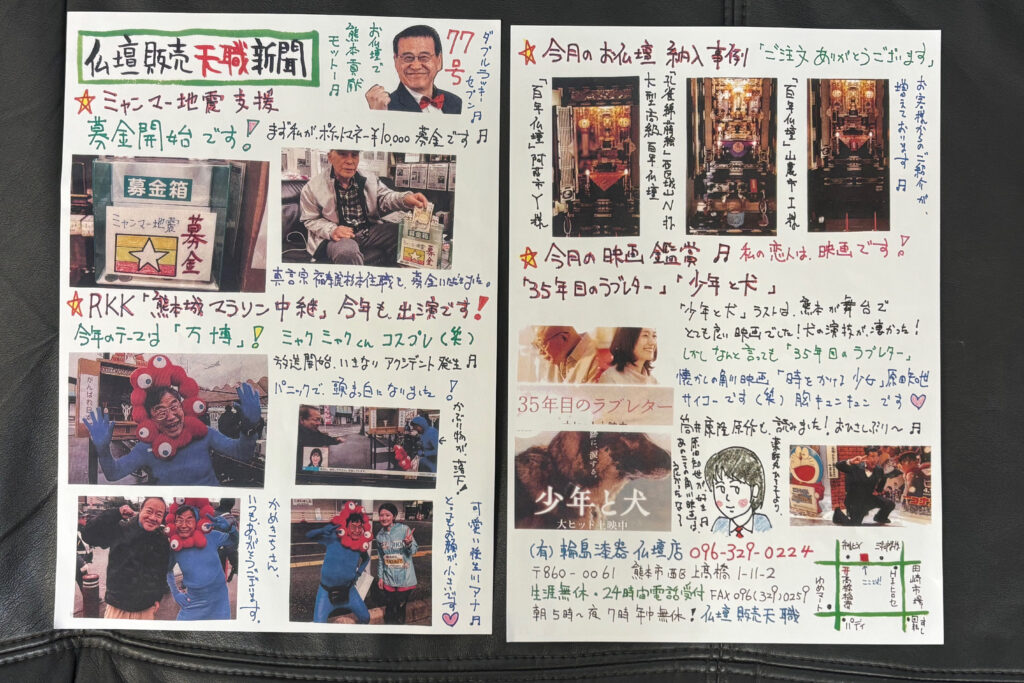 仏壇販売天職新聞
お仏壇で
熊本貢献
モットー♬
77号
ダブルラッキー
セブン♬
☆ミャンマー地震支援
募金開始です!
まず私が、ポケットマネー¥10,000 募金です♬
募金箱
ミャンマー地震
募金
募金箱
募金
☆RKK「熊本城マラソン中継」今年も、出演です!
今年のテーマは「万博」! ミャクミャクくんコスプレ(笑)
放送開始、いきなり アクシデント発生♬
パニックで、頭まっ白になりました!
かぶり物が、落下!
がんばれ日
かめきちさん、
いつもありがとうございます。
可愛い
アナ♬
とってもお顔が小さいです♡
☆今月のお仏壇 納入事例「ご注文ありがとうございます」
「百年仏壇」阿蘇市Y様
大型高級百年仏壇
「百年仏壇」山鹿市I様
お客様からのご紹介が、
増えております♬
☆今月の映画鑑賞♬ 私の恋人は、映画です!
「35年目のラブレター」「少年と犬」
「少年と犬」ラストは、熊本が舞台で
とても良い映画でした!犬の演技が、凄かった!
しかしなんと言っても「35年目のラブレター」
懐かしの角川映画「時をかける少女」原田知世
サイコーです(笑)胸キュンキュンです♡
筒井康隆原作も、読みました!おひさしぶり〜♬
35年目のラブレター
少年と犬
大ヒット上映中
(有)輪島漆器仏壇店 096-329-0224
〒860-0061 熊本市西区上高橋1-11-2
生涯無休・24時間電話受付 FAX 096(329)0259
朝5時〜夜7時年中無休!仏壇販売天職
ここだよ
高橋稲荷
田崎市場
ゆめマート